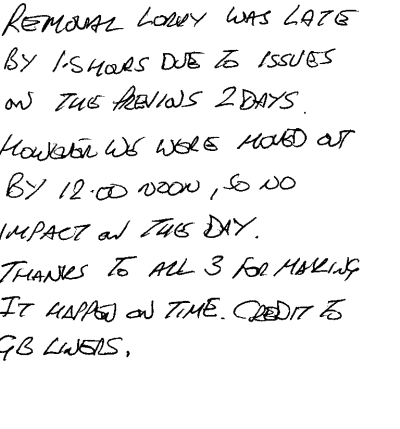 REMOVAL LORRY WAS LATE
BY 1.5 HOURS DUE TO ISSUES
ON THE PREVIOUS 2 DAYS.
HOWEVER WE WERE MOVED OUT
BY 12.00 NOON, SO NO
IMPACT ON THE DAY.
THANKS TO ALL 3 FOR MAKING
IT HAPPEN ON TIME. CREDIT TO
GB LINERS.